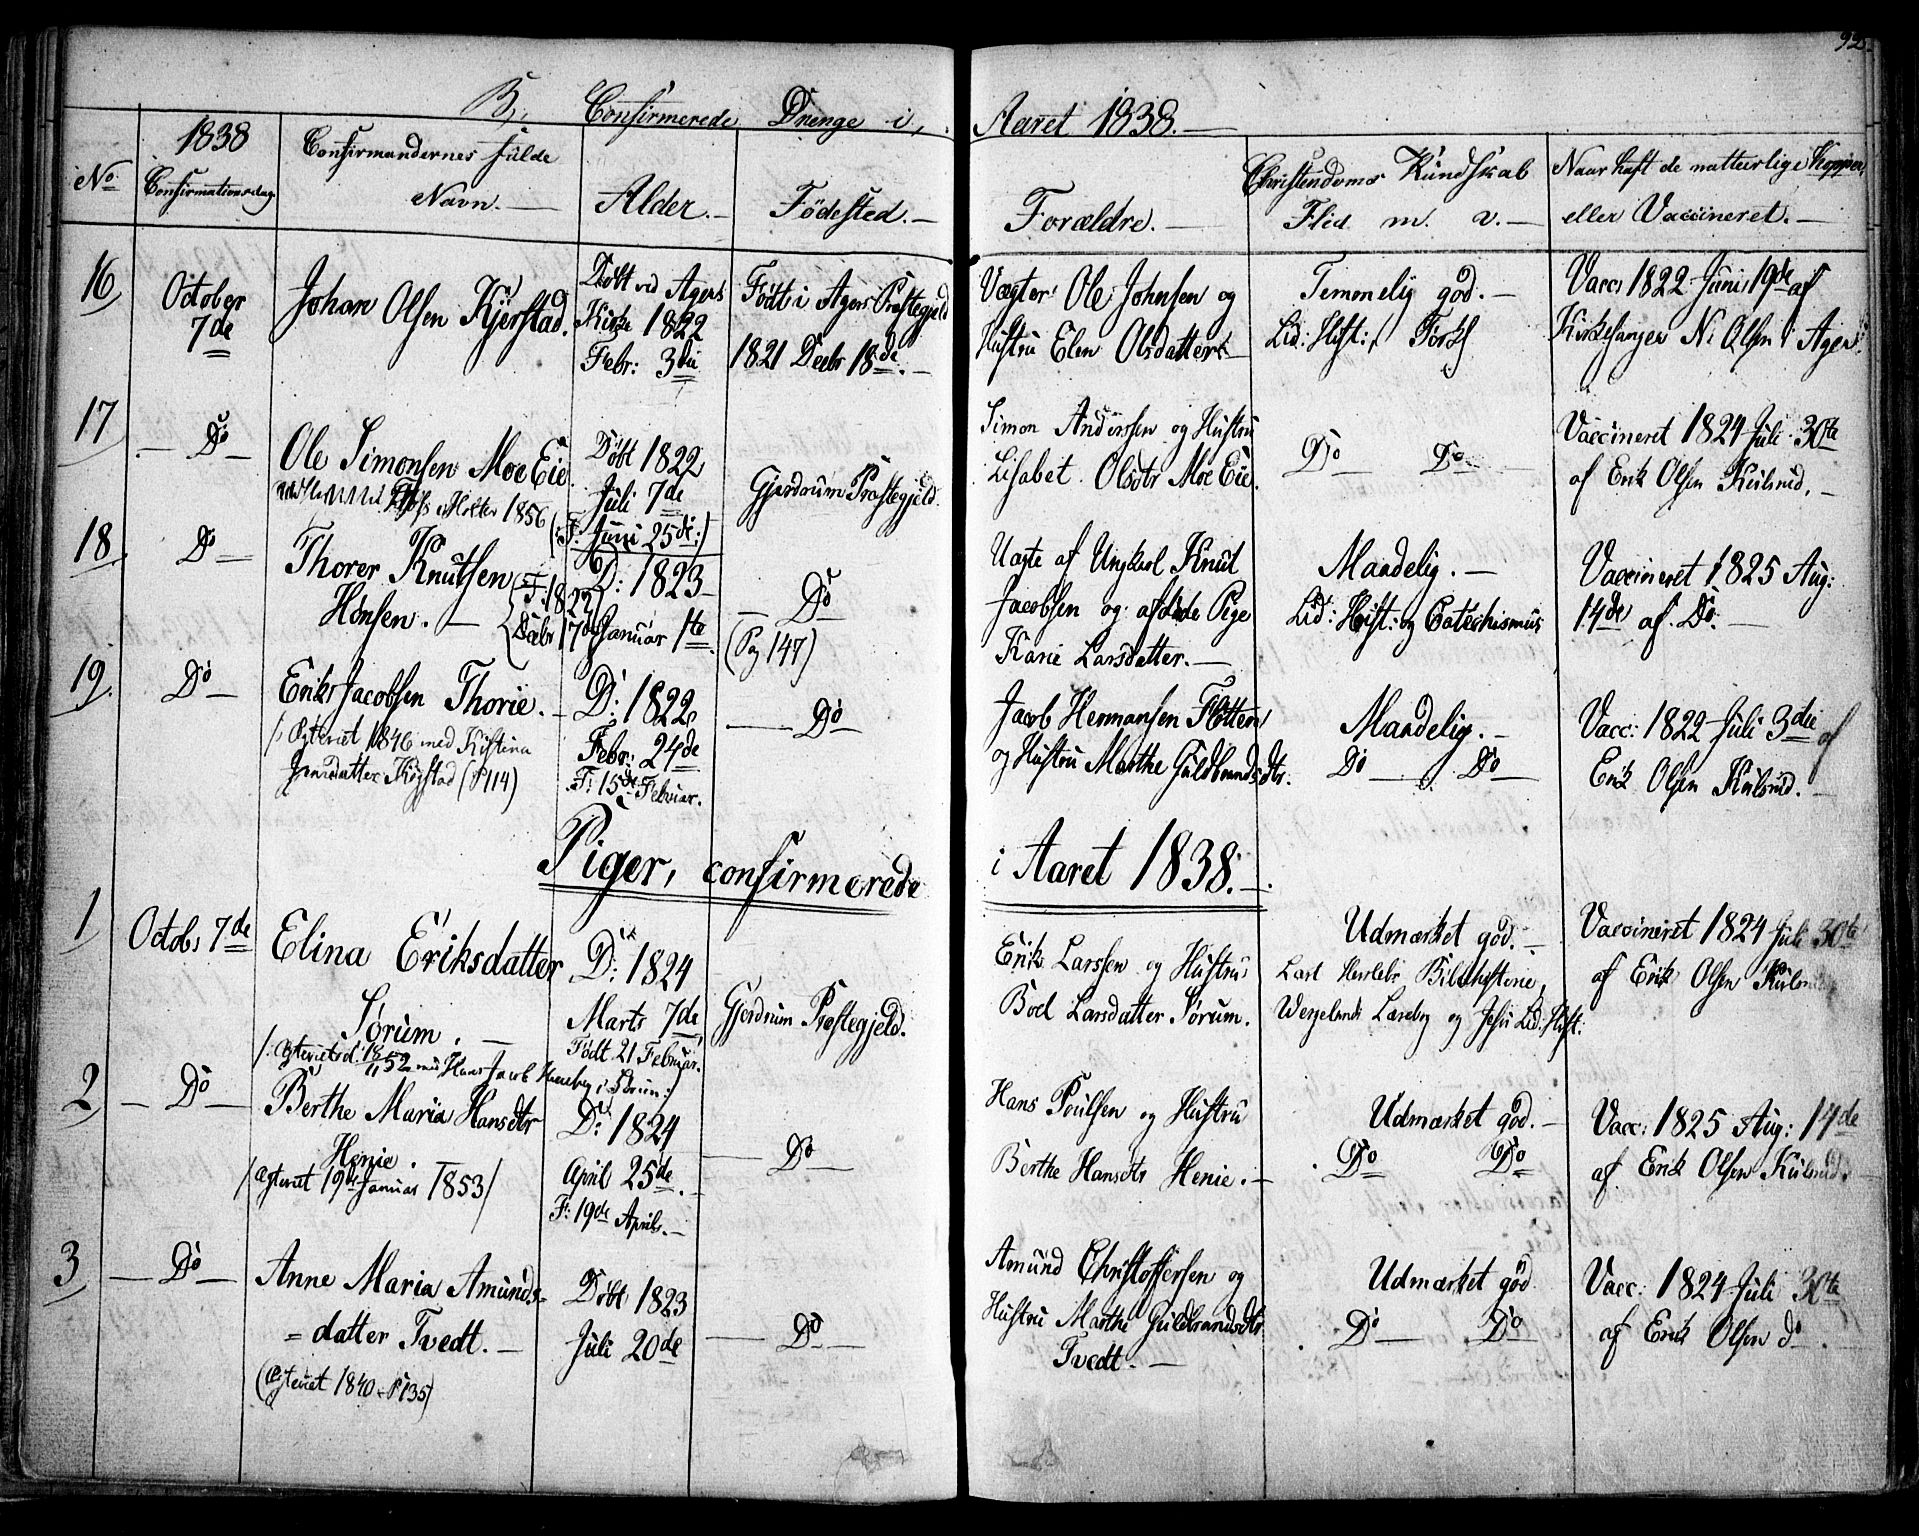 92.
B, Confirmerede Drenge i, Aaret 1838.—
No
1838
Confirmationsdag
Confirmandernes fulde
Navn.—
Alder.—
Fødested.—
Forældre.—
Christendoms Kundskab
Flid m. v.—
Naar haft de naturlige Kopper,
eller Vaccineret.—
16
October
7de
Johan Olsen Kjerstad.
Døbt ved Agers
Kirke 1822
Febr: 3die
Født i Agers Præstegjeld
1821 Decbr 18de.—
Vægter Ole Johnsen og
Hustru Elen Olsdatter—
Temmelig god.—
Lid: Hist:
Vacc: 1822 Juni 19de af
Kirkesanger N: Olsen i Ager.
17
— Do —
Ole Simonsen Moe Eie.
i Holter 1856
Døbt 1822
Juli 7de
(: F: Juni 25de:)
Gjerdrum Præstegjeld.
Simon Anderssen og Hustru
Lisabet Olsdtr Moe Eie.
Do — Do —
Vaccineret 1824 Juli 30te
af Erik Olsen Kulsrud.—
18
Do —
Thorer Knutsen
Hønsen.—
(F: 1822
Decbr 17de)
D: 1823
Januar 1te.
— Do
(Pag 147)
Uægte af Ungkarl Knut
Jacobsen og afdøde Pige
Karie Larsdatter.—
Maadelig.—
Lid: Hist: og Catechismus
Vaccineret 1825 Aug:
14de af Do.—
19.
Do —
Erik Jacobsen Thorie.—
/: Egteviet 1846 med Kistina
Jensdatter Kogstad (P 114)
D: 1822
Febr: 24de
F: 15de Februar.
— Do —
Jacob Hermansen Flotten
og Hustru Marthe Guldbrandsdtr.
Maadelig.—
Do — Do —
Vacc: 1822 Juli 3die af
Erik Olsen Kulsrud.—
Piger, confirmerede i Aaret 1838.—
1
Octobr 7de
Elina Eriksdatter
Sørum.—
/: Egteviet d: 18/11 52 med Hans Jacob i Sørum:/
D: 1824
Marts 7de
Født 21 Februar.
Gjerdrum Præstegjeld.
Erik Larssen og Hustru
Boel Larsdatter Sørum.
Udmærket god.—
Læst Herslebs Bibelhistorie,
Wergelands Lærebog og Jesu Lid: Hist:
Vaccineret 1824 Juli 30te
af Erik Olsen Kulsrud
2
— Do —
Berthe Maria Hansdtr
Henie.
/Egteviet 19de Januar 1853/
D: 1824
April 25de.
F: 19de April.—
— Do —
Hans Poulsen og Hustru
Berthe Hansdtr Henie.—
Udmærket god.—
Do — Do
Vacc: 1825 Aug: 14de
af Erik Olsen Kulsrud.
3
— Do —
Anne Maria Amunds-
=datter Tvedt.—
(Egteviet 1840 P 135)
Døbt 1823
Juli 20de
— Do —
Amund Christoffersen og
Hustru Marthe Guldbrandsdtr
Tvedt.—
Udmærket god
Do — Do
Vacc: 1824 Juli 30te
af Erik Olsen do.